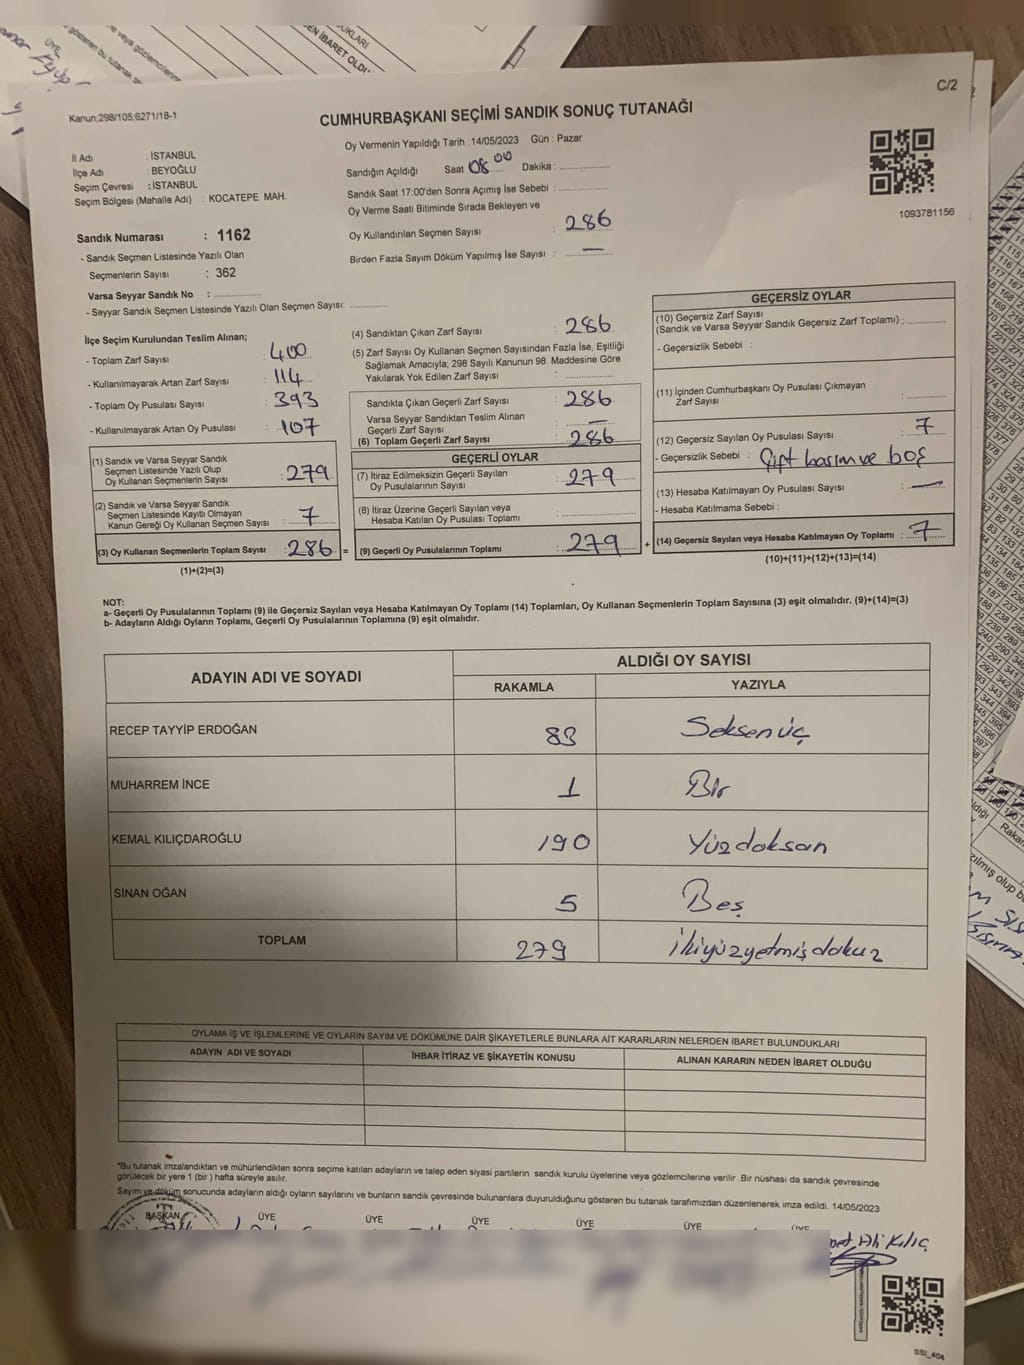 C/2
Kanun:298/105,6271/18-1
CUMHURBAŞKANI SEÇİMİ SANDIK SONUÇ TUTANAĞI
Oy Vermenin Yapıldığı Tarih :14/05/2023 Gün : Pazar
İl Adı : İSTANBUL
İlçe Adı : BEYOĞLU
Seçim Çevresi : İSTANBUL
Seçim Bölgesi (Mahalle Adı) : KOCATEPE MAH.
Sandığın Açıldığı Saat 08.00 Dakika :
Sandık Saat 17:00'den Sonra Açımış İse Sebebi :
Oy Verme Saati Bitiminde Sırada Bekleyen ve
Oy Kullandırılan Seçmen Sayısı : 286
Birden Fazla Sayım Döküm Yapılmış İse Sayısı : —
1093781156
Sandık Numarası : 1162
- Sandık Seçmen Listesinde Yazılı Olan
Seçmenlerin Sayısı : 362
Varsa Seyyar Sandık No :
- Seyyar Sandık Seçmen Listesinde Yazılı Olan Seçmen Sayısı:
İlçe Seçim Kurulundan Teslim Alınan;
- Toplam Zarf Sayısı : 400
- Kullanılmayarak Artan Zarf Sayısı : 114
- Toplam Oy Pusulası Sayısı : 393
- Kullanılmayarak Artan Oy Pusulası : 107
(1) Sandık ve Varsa Seyyar Sandık
Seçmen Listesinde Yazılı Olup
Oy Kullanan Seçmenlerin Sayısı : 279
(2) Sandık ve Varsa Seyyar Sandık
Seçmen Listesinde Kayıtlı Olmayan
Kanun Gereği Oy Kullanan Seçmen Sayısı : 7
(3) Oy Kullanan Seçmenlerin Toplam Sayısı : 286 =
(1)+(2)=(3)
(4) Sandıktan Çıkan Zarf Sayısı : 286
(5) Zarf Sayısı Oy Kullanan Seçmen Sayısından Fazla İse, Eşitliği
Sağlamak Amacıyla; 298 Sayılı Kanunun 98. Maddesine Göre
Yakılarak Yok Edilen Zarf Sayısı :
Sandıkta Çıkan Geçerli Zarf Sayısı : 286
Varsa Seyyar Sandıktan Teslim Alınan
Geçerli Zarf Sayısı : —
(6) Toplam Geçerli Zarf Sayısı : 286
GEÇERLİ OYLAR
(7) İtiraz Edilmeksizin Geçerli Sayılan
Oy Pusulalarının Sayısı : 279
(8) İtiraz Üzerine Geçerli Sayılan veya
Hesaba Katılan Oy Pusulası Toplamı :
(9) Geçerli Oy Pusulalarının Toplamı : 279 +
GEÇERSİZ OYLAR
(10) Geçersiz Zarf Sayısı
(Sandık ve Varsa Seyyar Sandık Geçersiz Zarf Toplamı) :
- Geçersizlik Sebebi :
(11) İçinden Cumhurbaşkanı Oy Pusulası Çıkmayan
Zarf Sayısı :
(12) Geçersiz Sayılan Oy Pusulası Sayısı : 7
- Geçersizlik Sebebi : Çift basım ve boş
(13) Hesaba Katılmayan Oy Pusulası Sayısı : —
- Hesaba Katılmama Sebebi :
(14) Geçersiz Sayılan veya Hesaba Katılmayan Oy Toplamı : 7
(10)+(11)+(12)+(13)=(14)
NOT:
a- Geçerli Oy Pusulalarının Toplamı (9) ile Geçersiz Sayılan veya Hesaba Katılmayan Oy Toplamı (14) Toplamları, Oy Kullanan Seçmenlerin Toplam Sayısına (3) eşit olmalıdır. (9)+(14)=(3)
b- Adayların Aldığı Oyların Toplamı, Geçerli Oy Pusulalarının Toplamına (9) eşit olmalıdır.
ADAYIN ADI VE SOYADI ALDIĞI OY SAYISI
RAKAMLA YAZIYLA
RECEP TAYYİP ERDOĞAN 83 Seksen üç
MUHARREM İNCE 1 Bir
KEMAL KILIÇDAROĞLU 190 Yüzdoksan
SİNAN OĞAN 5 Beş
TOPLAM 279 İkiyüzyetmişdokuz
OYLAMA İŞ VE İŞLEMLERİNE VE OYLARIN SAYIM VE DÖKÜMÜNE DAİR ŞİKAYETLERLE BUNLARA AİT KARARLARIN NELERDEN İBARET BULUNDUKLARI
ADAYIN ADI VE SOYADI İHBAR İTİRAZ VE ŞİKAYETİN KONUSU ALINAN KARARIN NEDEN İBARET OLDUĞU
*Bu tutanak imzalandıktan ve mühürlendikten sonra seçime katılan adayların ve talep eden siyasi partilerin sandık kurulu üyelerine veya gözlemcilerine verilir. Bir nüshası da sandık çevresinde
görülecek bir yere 1 (bir) hafta süreyle asılır.
Sayım ve döküm sonucunda adayların aldığı oyların sayılarını ve bunların sandık çevresinde bulunanlara duyurulduğunu gösteren bu tutanak tarafımızdan düzenlenerek imza edildi. 14/05/2023
BAŞKAN ÜYE ÜYE ÜYE ÜYE ÜYE ÜYE
Ali Kılıç
SSI_404